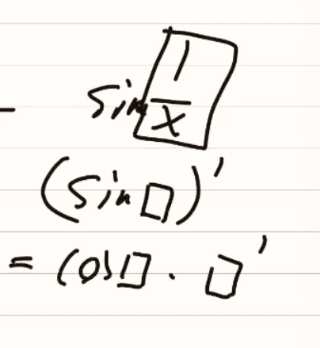 - sin 1/x
(sin □)'
= cos □ · □'